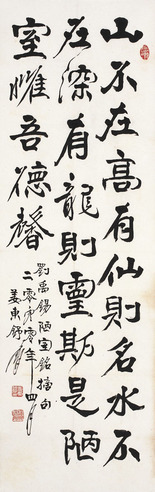 山不在高有仙則名水不
在深有龍則靈斯是陋
室惟吾德馨
劉禹錫陋室銘摘句
二零零零年四月
姜東舒